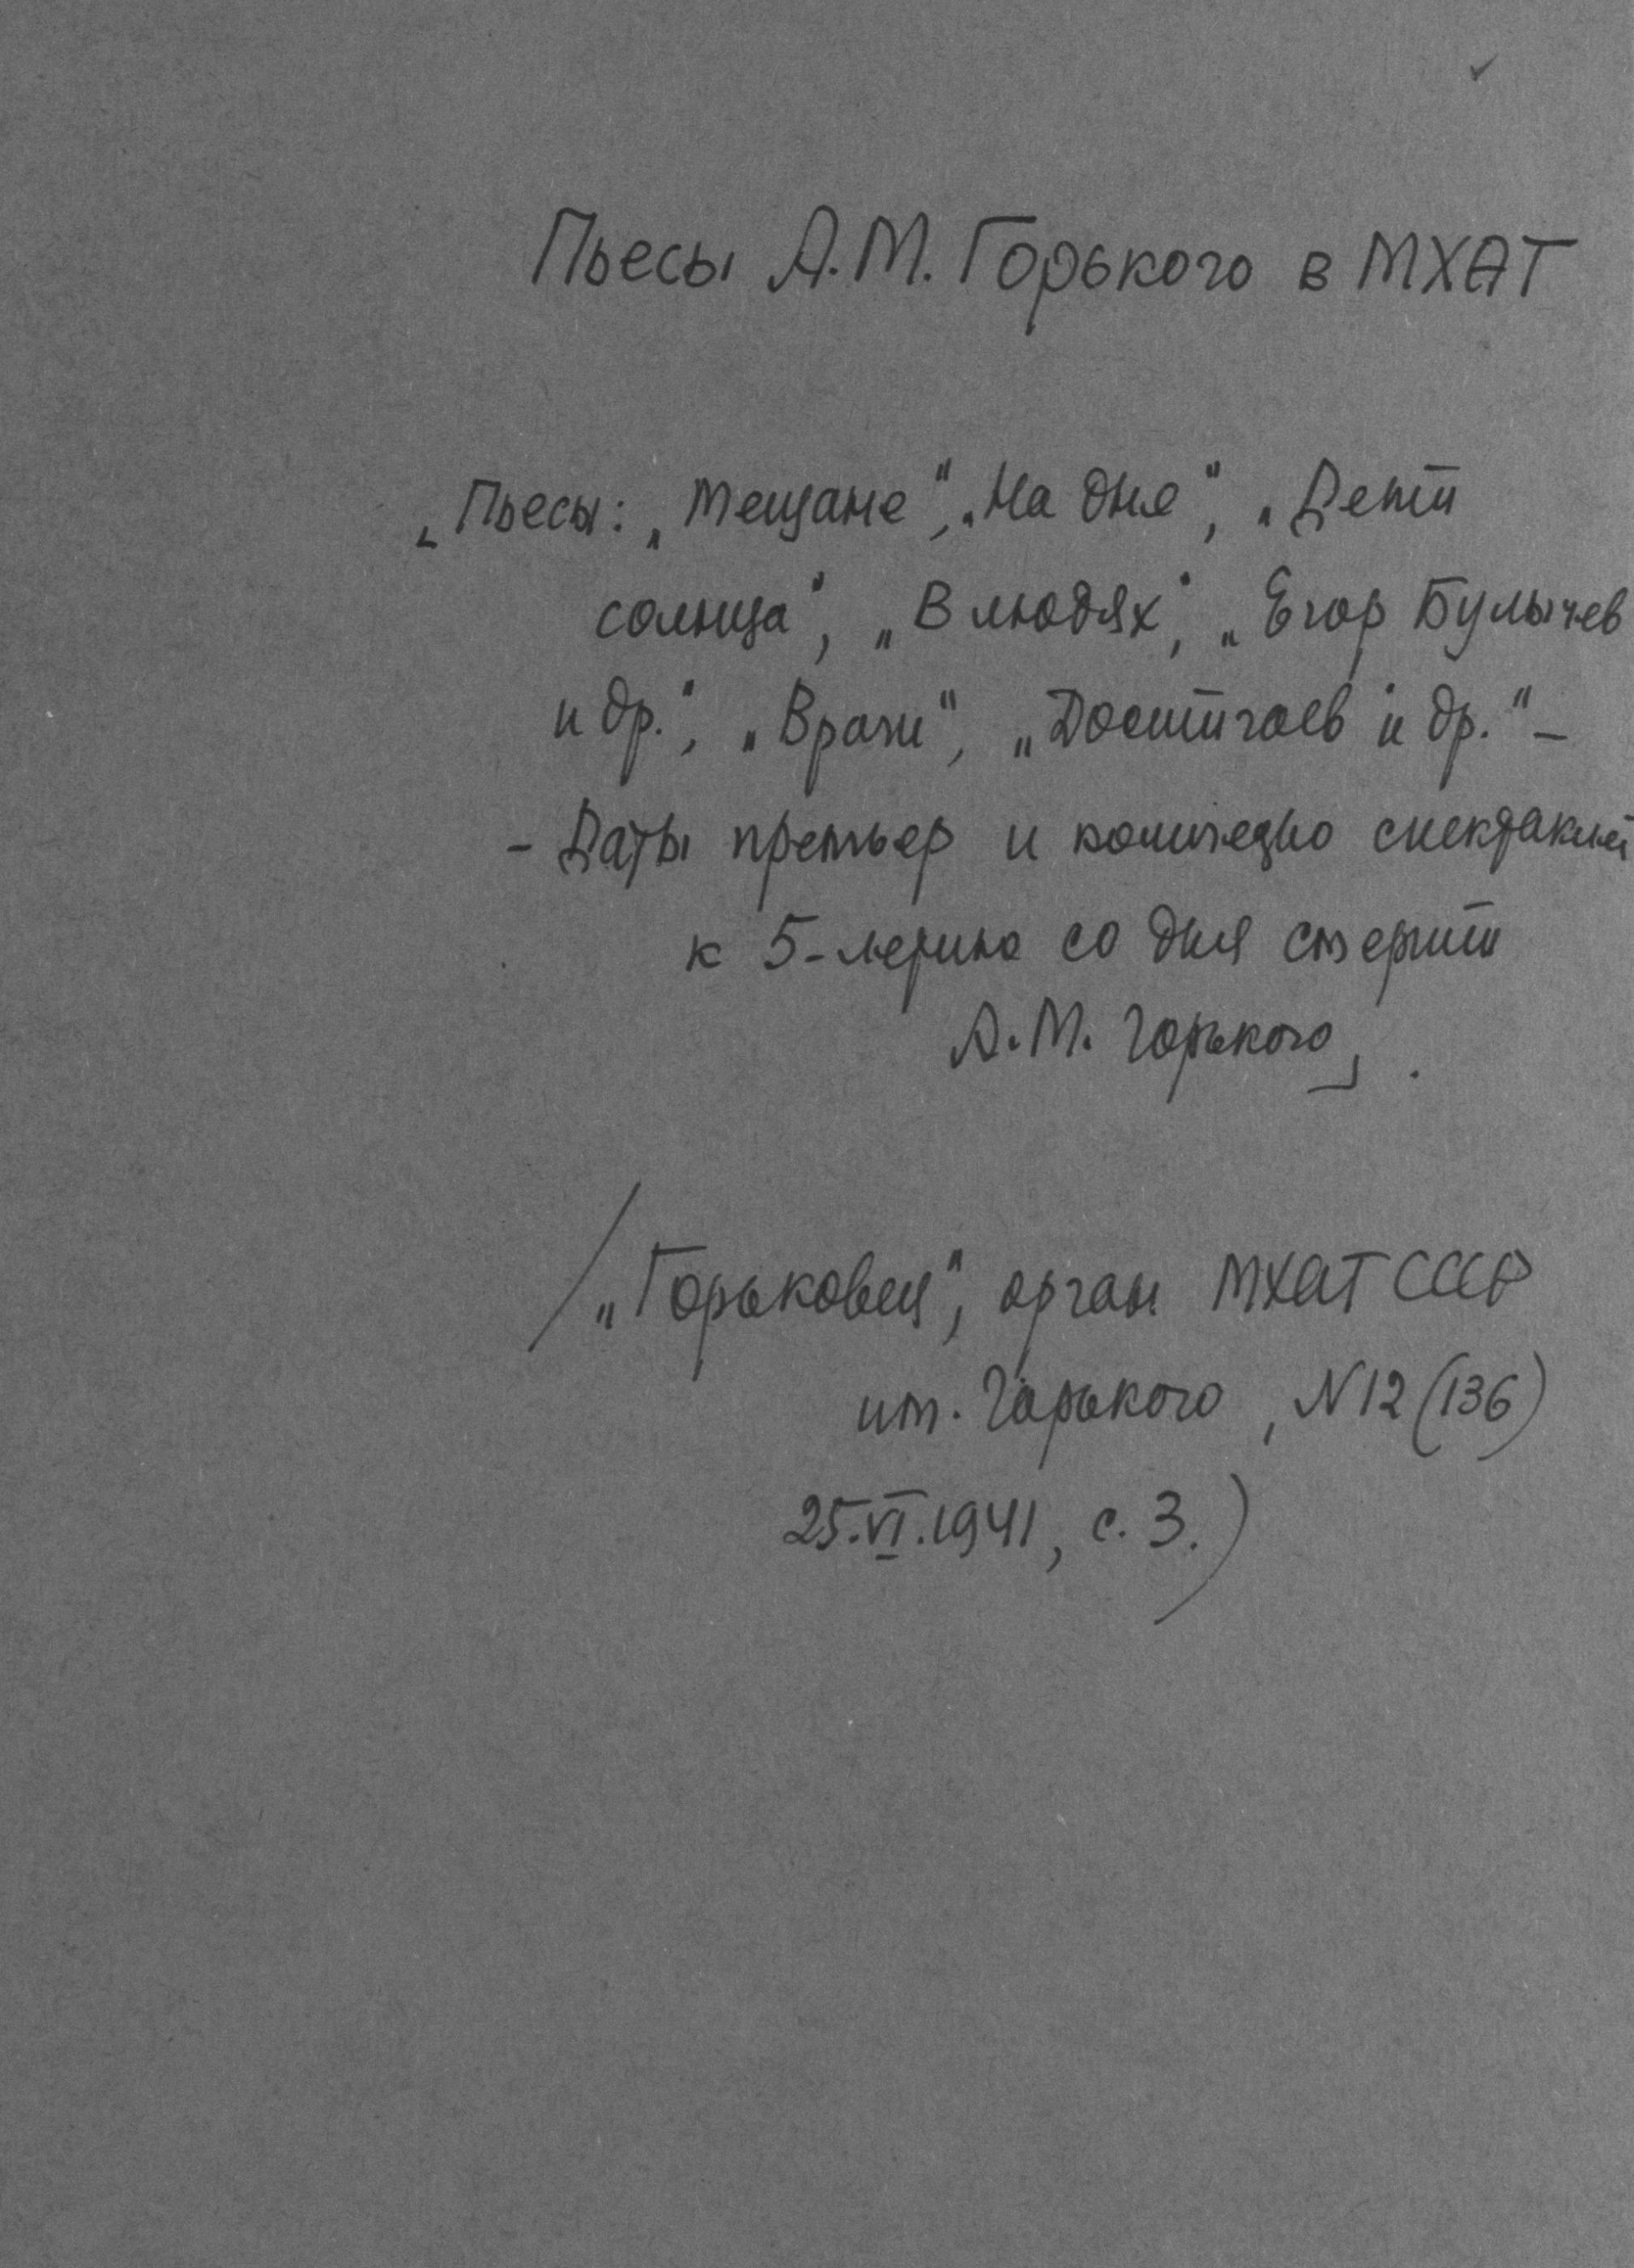 Пьесы А.М. Горького в МХАТ
„Пьесы: „Мещане“, „На дне“, „Дети
солнца“, „В людях“, „Егор Булычев
и др.“, „Враги“, „Достигаев и др.“ –
– Даты премьер и количество спектаклей
к 5-летию со дня смерти
А.М. Горького」.
/„Горьковец“, орган МХАТ СССР
им. Горького, N12 (136)
25.VI.1941, с. 3.)